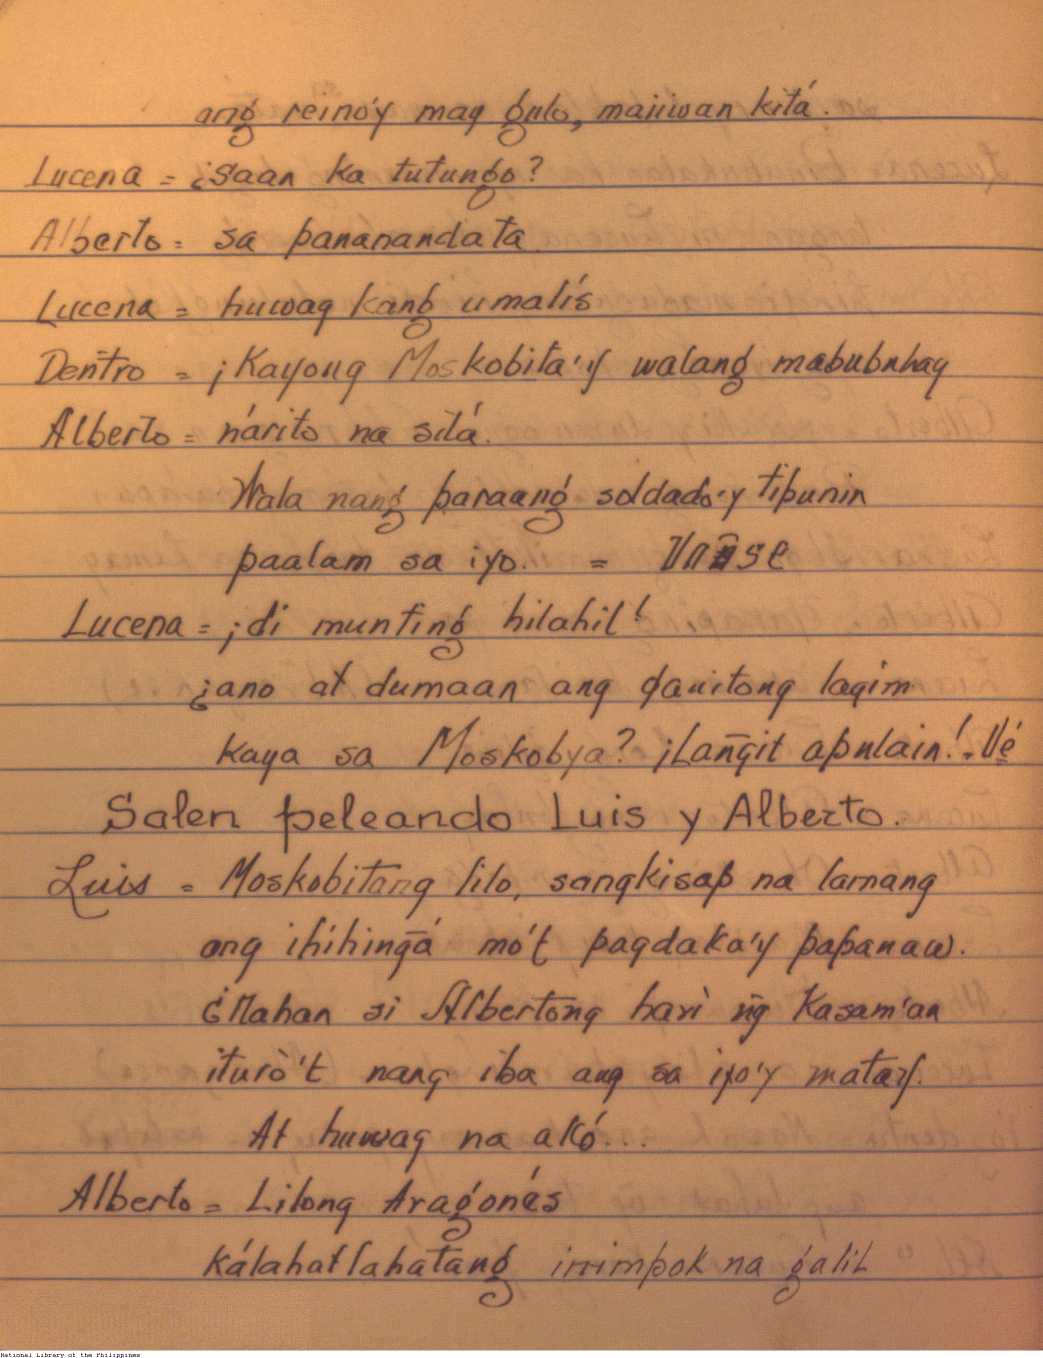 ang reino'y mag gulo, maiiwan kitá.
Lucena = ¿saan ka tutungo?
Alberto = sa pananandata
Lucena = huwag kang umalís
Dentro = ¡Kayong Moskobita'y walang mabubuhay
Alberto = nárito na silá.
Wala nang paraang soldado'y tipunin
paalam sa iyo. = Vanse
Lucena = ¡di munting hilahil!
¿ano at dumaan ang ganitong lagim
kaya sa Moskobya? ¡Lan̄git apulain!. Vé
Salen peleando Luis y Alberto.
Luis = Moskobitang lilo, sangkisap na lamang
ang ihihin̄gá mo't pagdaka'y papanaw.
¿Nahan si Albertong hari n̄g Kasam'an
iturò't nang iba ang sa iyo'y matay.
At huwag na akó...
Alberto = Lilong Aragonés
kálahatlahatang iniimpok na galit
National Library of the Philippines